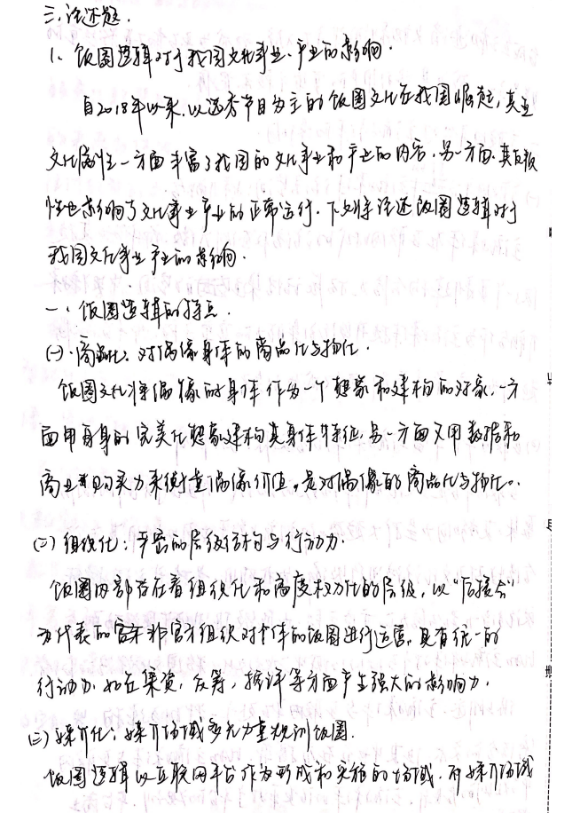 三.论述题.
1. 饭圈逻辑对于我国文化事业、产业的影响.
自2018年以来,以选秀节目为主的饭圈文化在我国崛起,其
文化属性一方面丰富了我国的文化事业和产业的内容.另一方面,其
性也影响了文化事业产业的正常运行.下文将论述饭圈逻辑对于
我国文化事业产业的影响.
一. 饭圈逻辑的特点.
(一).商品化:对偶像身体的商品化与物化.
饭圈文化将偶像的身体作为一个想象和建构的对象.一方
面用自身的完美化想象建构其身体特征,另一方面又用数据和
商业购买力来衡量偶像价值。是对偶像的商品化与物化。
(二)组织化:严密的层级结构与行动力.
饭圈内部存在着组织化和高度权力化的层级,以“后援会”
为代表的官方非官方组织对个体的饭圈进行运营,具有统一的
行动力.如在集资,反黑,控评等方面产生强大的影响力.
(三)媒介化:媒介场域多元力量规训饭圈.
饭圈逻辑以互联网平台作为形成和实践的场域.而媒介场域